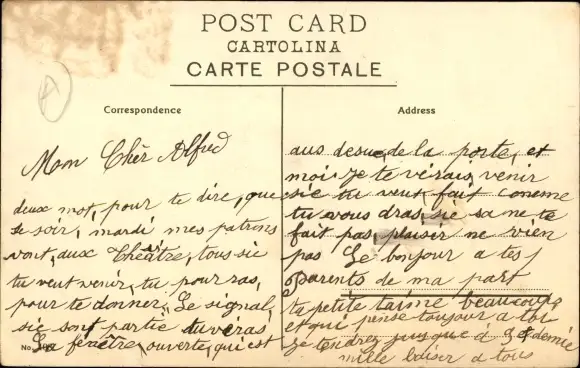 POST CARD
CARTOLINA
CARTE POSTALE
Correspondence
Address
Mon Chèr Alfred
deux mot, pour te dire, que
se soir, mardi mes patrons
vont, aux Théâtre, tous sie
tu veut venir, tu pourras,
pour te donner, Le signal,
sie sont partie tu véras
La fenêtre, ouverte, qui est
No.
aus desue, de la porte, et
moi je te vérais, venir
sie tu veut, fait comme
tu vous dras, sie sa ne te
fait pas, plaisir ne vien
pas Le bonjour a tes
parents de ma part
ta petite t'aime beaucoup
et qui pense toujour a toi
Je tendrez jusque a et demie
mille baiser a tous